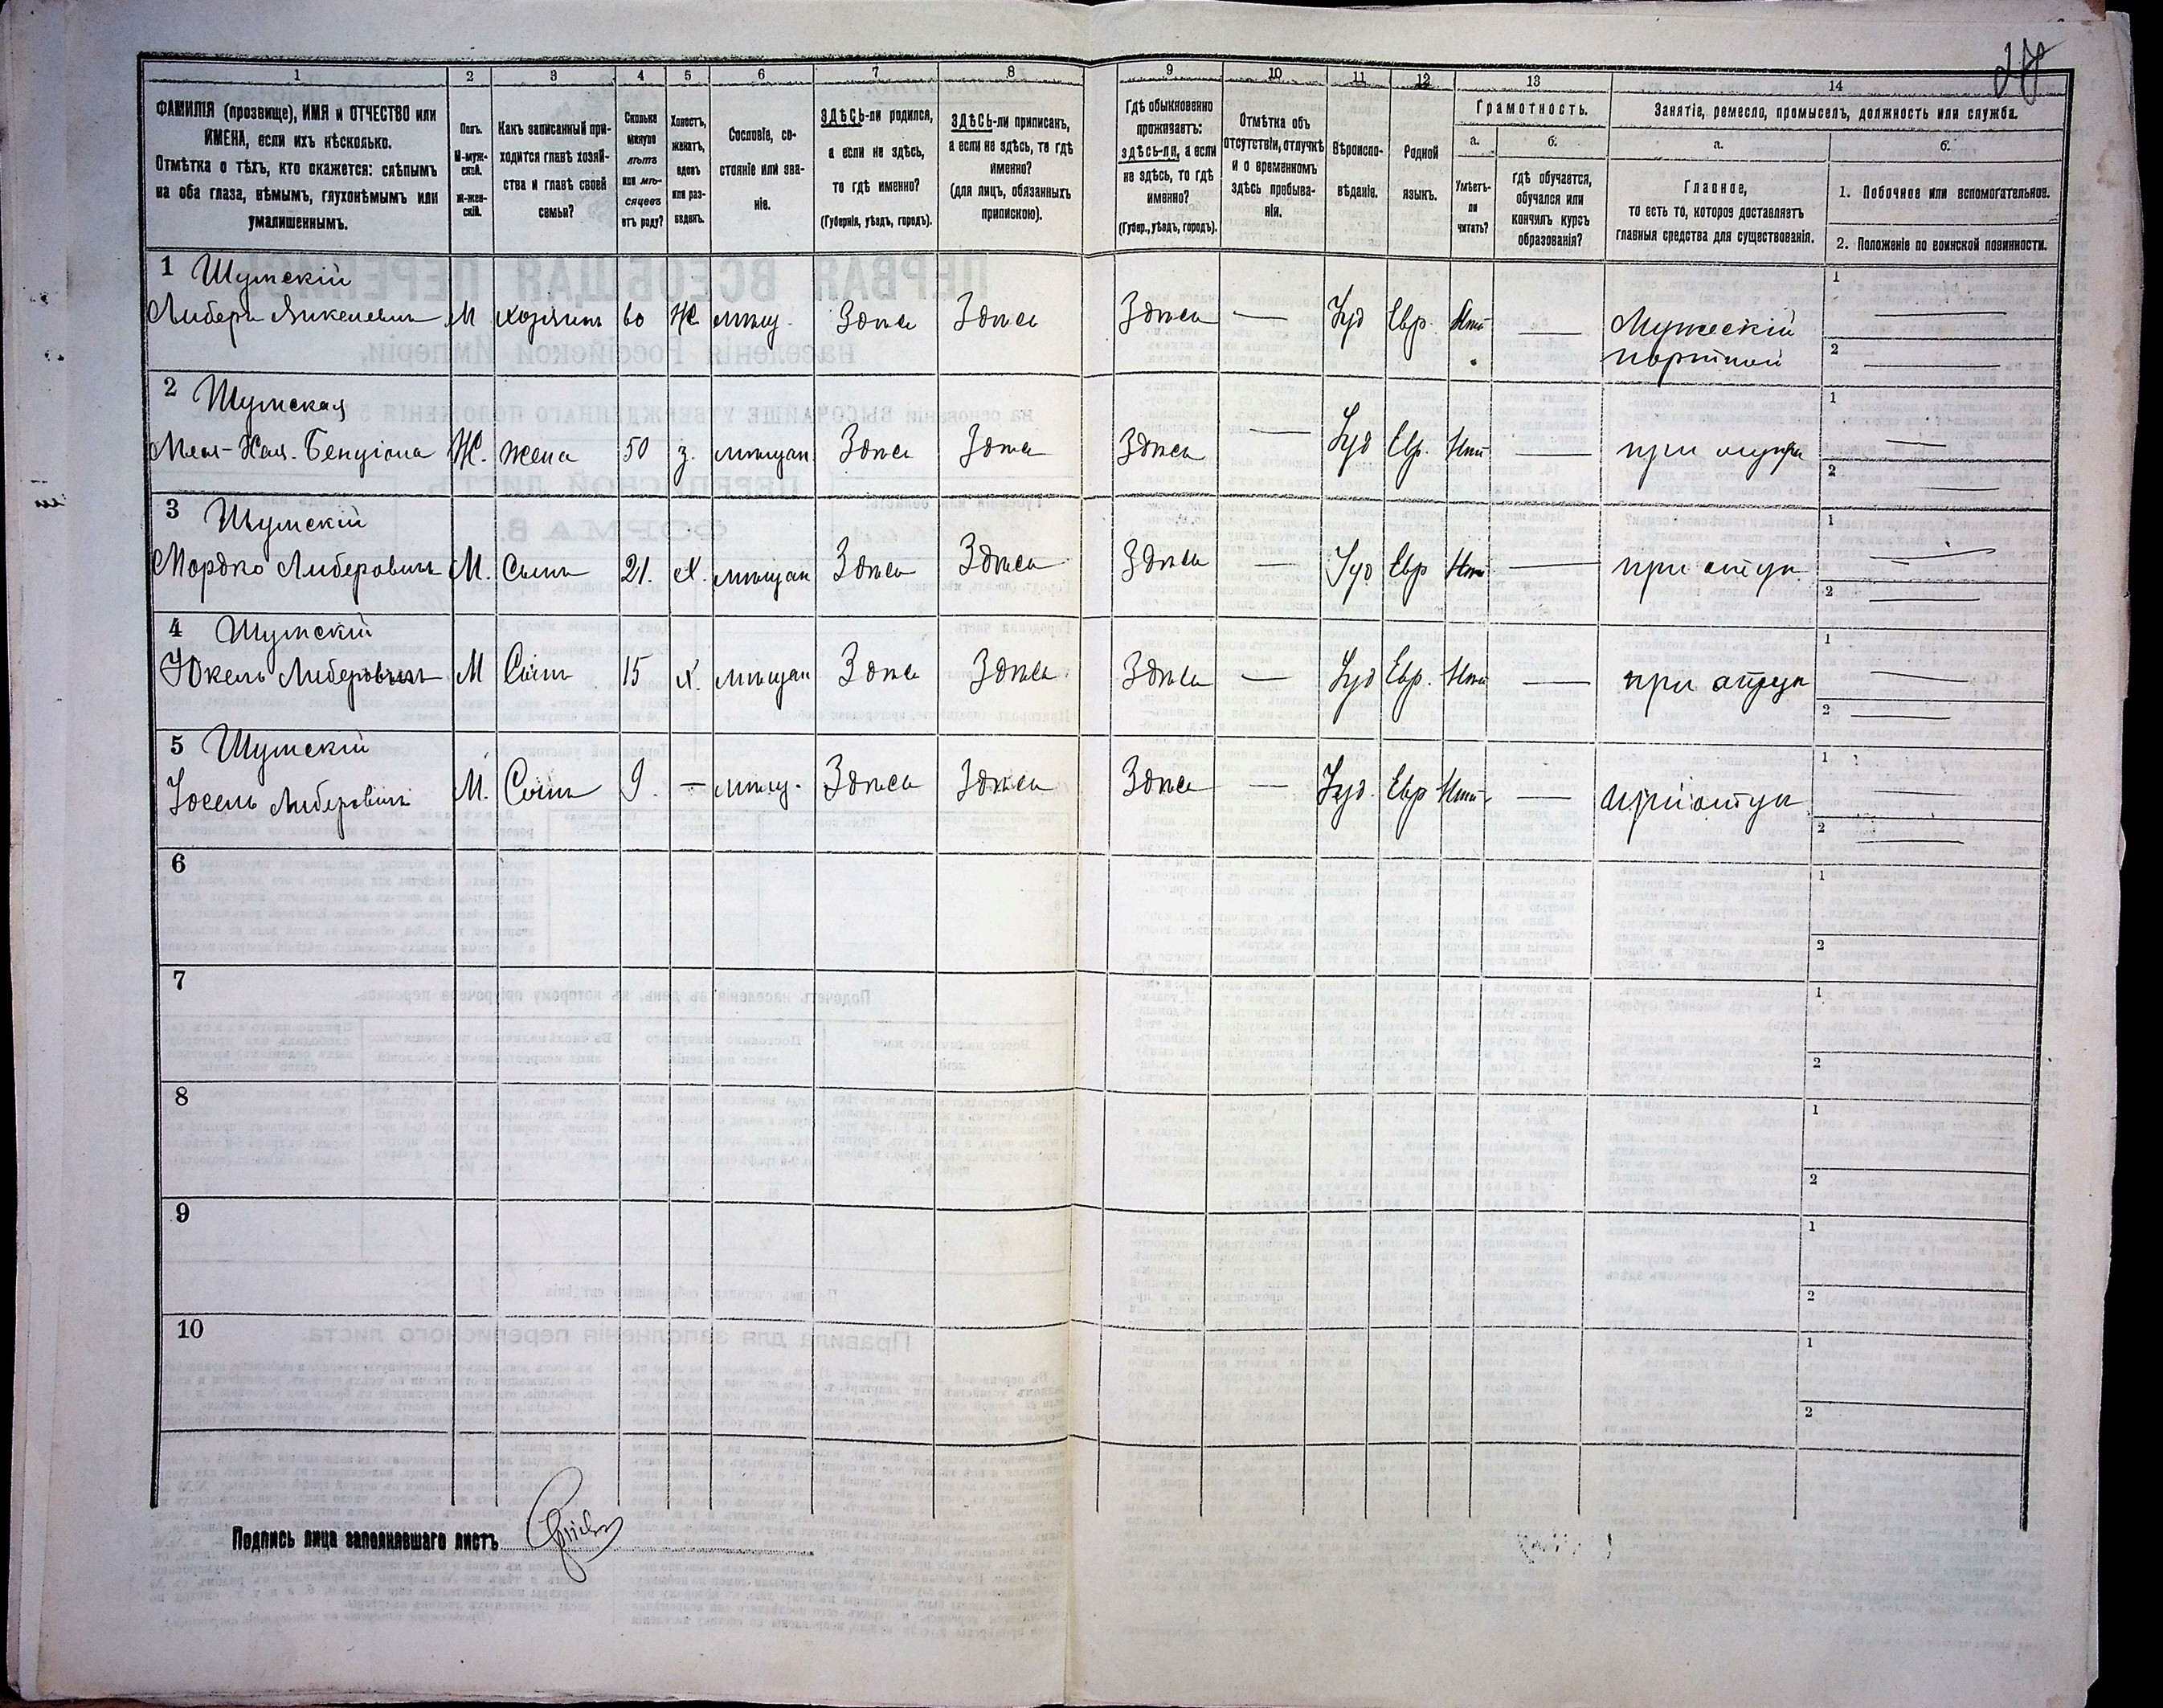 27
1 2 3 4 5 6 7 8 9 10 11 12 13 14
ФАМИЛІЯ (прозвище), ИМЯ и ОТЧЕСТВО или
ИМЕНА, если ихъ нѣсколько.
Отмѣтка о тѣхъ, кто окажется: слѣпымъ
на оба глаза, нѣмымъ, глухонѣмымъ или
умалишеннымъ.
Полъ.
М-муж-
ской.
Ж-жен-
скій.
Какъ записанный при-
ходится главѣ хозяй-
ства и главѣ своей
семьи?
Сколько
минуло
лѣтъ
или мѣ-
сяцевъ
отъ роду?
Холостъ,
женатъ,
вдовъ
или раз-
веденъ.
Сословіе, со-
стояніе или зва-
ніе.
ЗДѢСЬ-ли родился,
а если не здѣсь,
то гдѣ именно?
(Губернія, уѣздъ, городъ).
ЗДѢСЬ-ли приписанъ,
а если не здѣсь, то гдѣ
именно?
(для лицъ, обязанныхъ
припискою).
Гдѣ обыкновенно
проживаетъ:
здѣсь-ли, а если
не здѣсь, то гдѣ
именно?
(Губер., уѣздъ, городъ).
Отмѣтка объ
отсутствіи, отлучкѣ
и о временномъ
здѣсь пребыва-
ніи.
Вѣроиспо-
вѣданіе.
Родной
языкъ.
Грамотность.
а.
Умѣетъ-
ли
читать?
б.
гдѣ обучается,
обучался или
кончилъ курсъ
образованія?
Занятіе, ремесло, промыселъ, должность или служба.
а.
Главное,
то есть то, которое доставляетъ
главныя средства для существованія.
б.
1. Побочное или вспомогательное.
2. Положеніе по воинской повинности.
1 Шумскій
Либеръ М хозяинъ 60 Ж мѣщ. Здѣсь Здѣсь Здѣсь — Іуд Евр. Нѣтъ — Мужескій 1 —
портной 2 —
2 Шумская
Ж. жена 50 з. мѣщан Здѣсь Здѣсь Здѣсь — Іуд Евр. Нѣтъ — при 1 —
2 —
3 Шумскій
Мордко Либеровичъ М. Сынъ 21. Х. мѣщан Здѣсь Здѣсь Здѣсь — Іуд Евр Нѣтъ — при отцѣ 1 —
2 —
4 Шумскій
Юкель Либеровичъ М Сынъ 15 Х. мѣщан Здѣсь Здѣсь Здѣсь — Іуд Евр. Нѣтъ — при отцѣ 1 —
2 —
5 Шумскій
Іосель Либеровичъ М. Сынъ 9. — мѣщ. Здѣсь Здѣсь Здѣсь — Іуд. Евр Нѣтъ — при отцѣ 1 —
2 —
6 1
2
7 1
2
8 1
2
9 1
2
10 1
2
Подпись лица заполнявшаго листъ